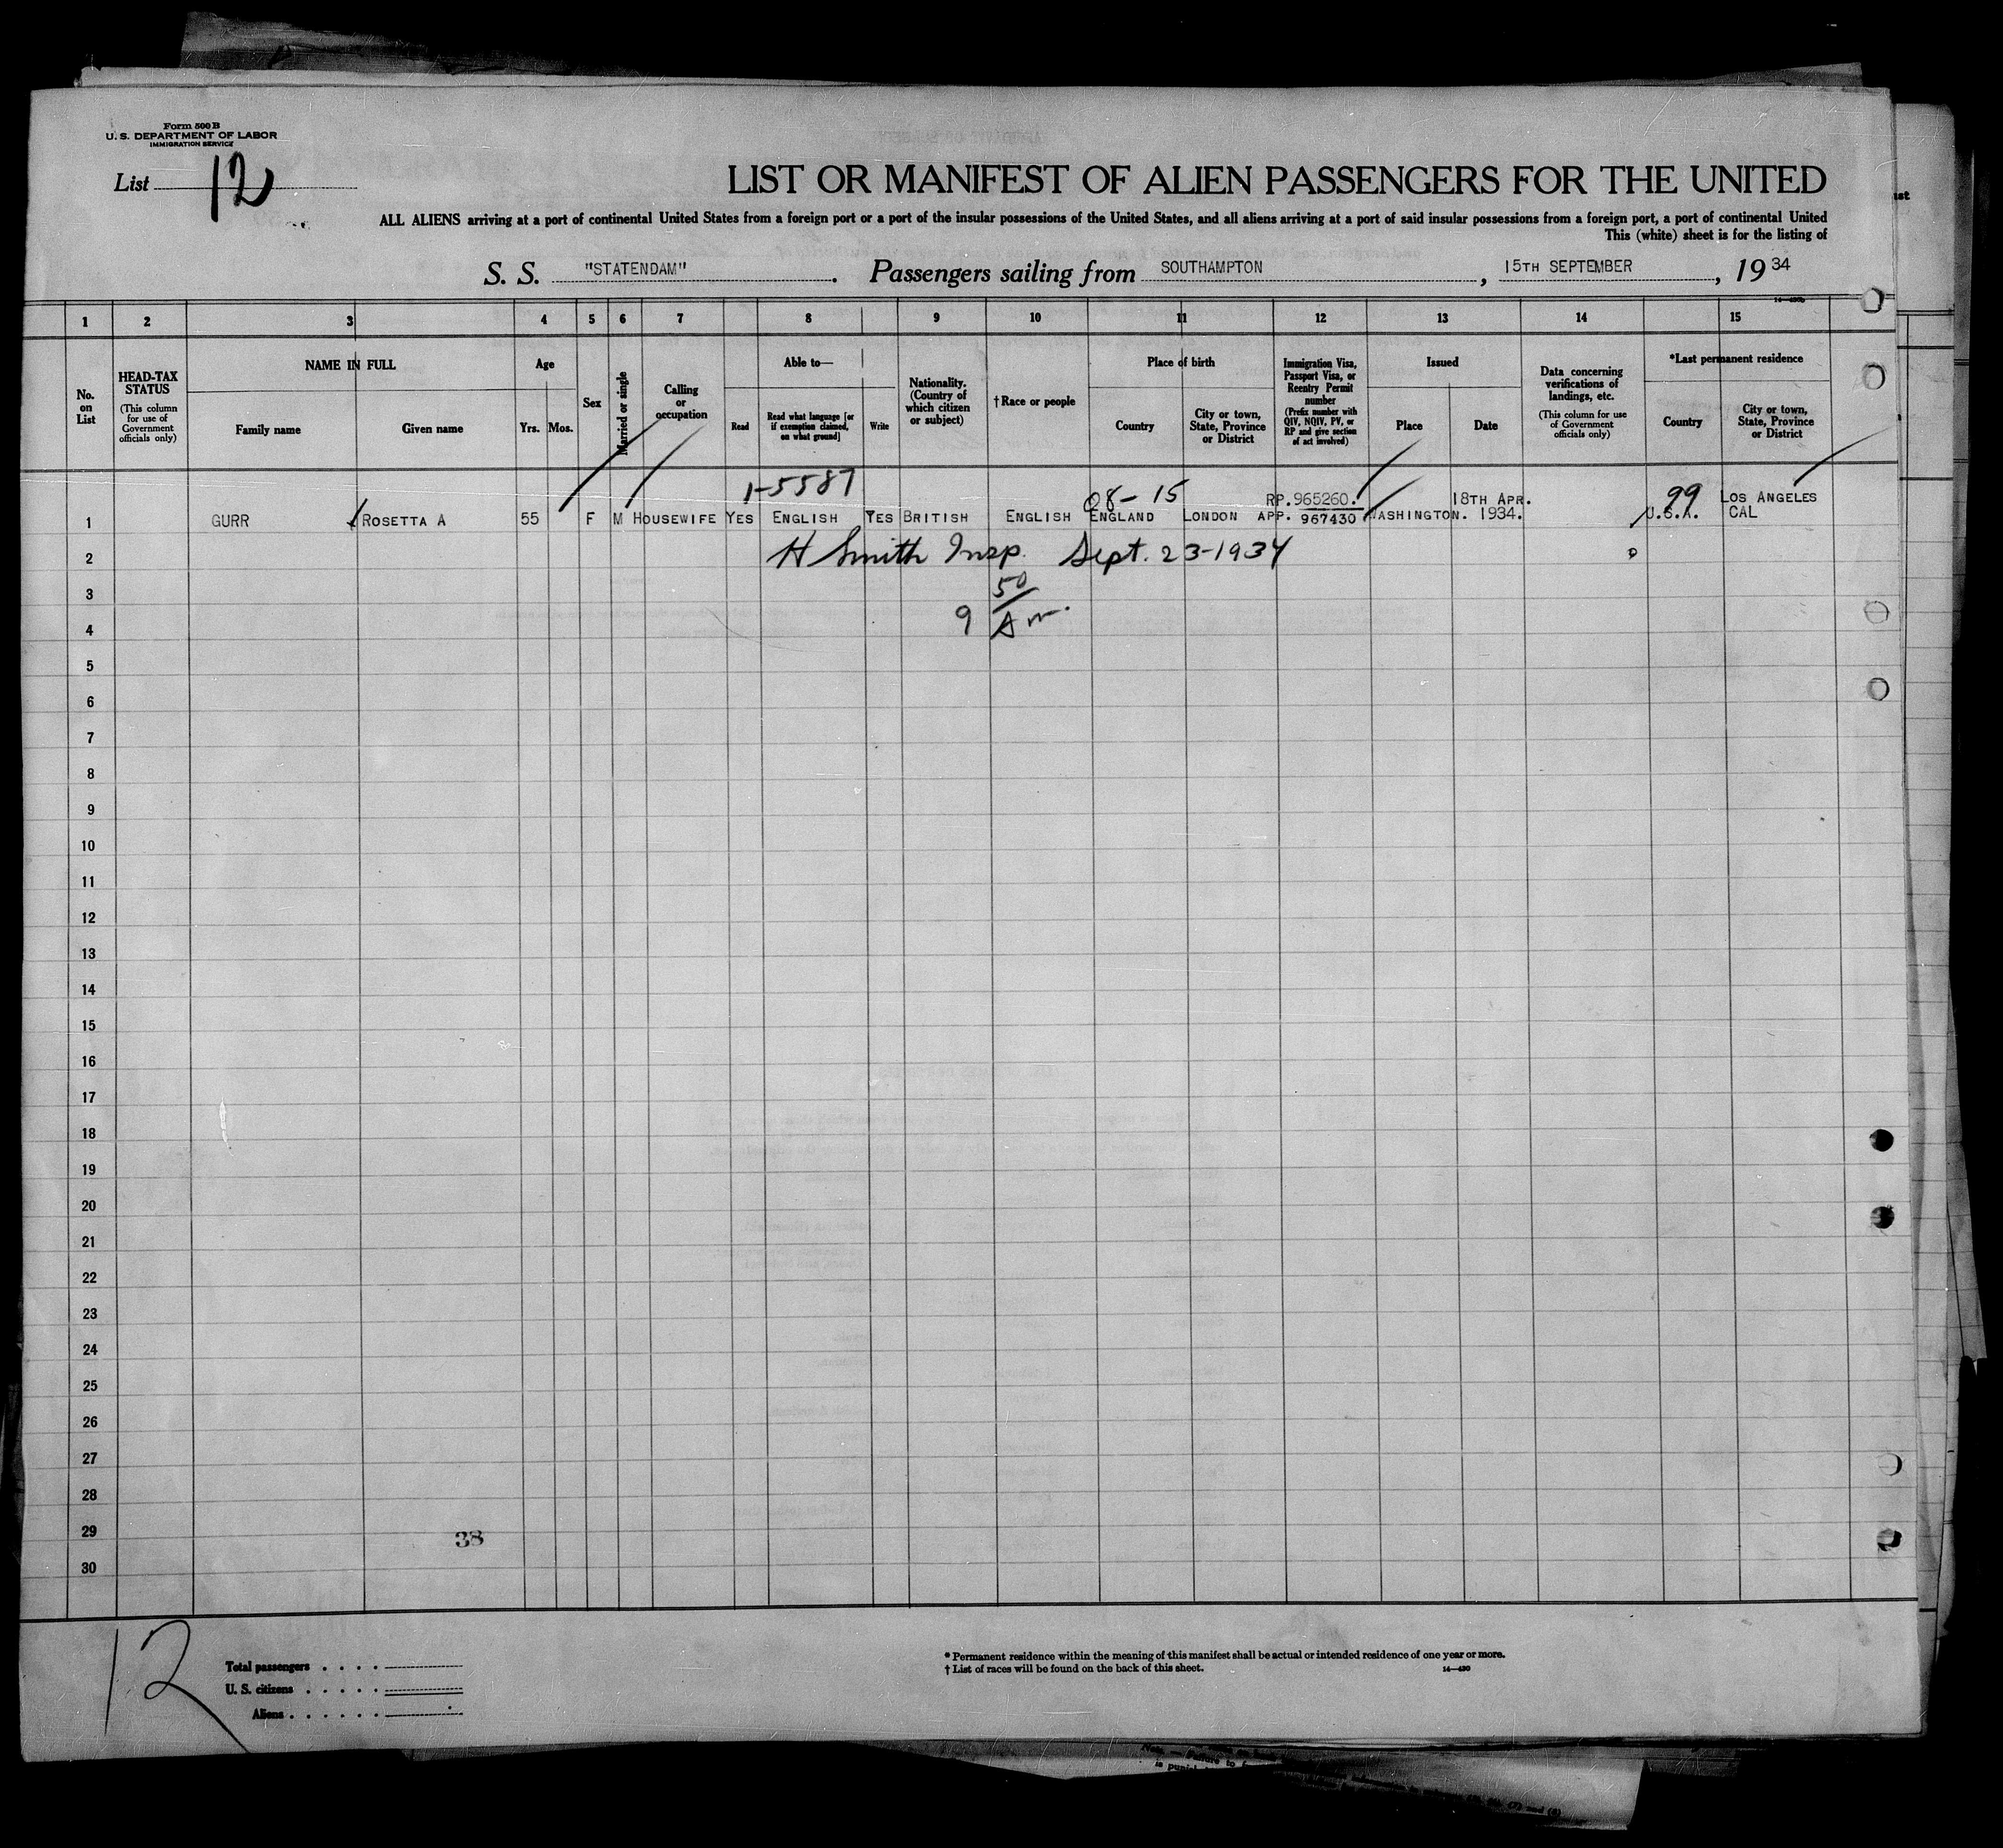 Form 500 B
U. S. DEPARTMENT OF LABOR
IMMIGRATION SERVICE
List 12
LIST OR MANIFEST OF ALIEN PASSENGERS FOR THE UNITED
ALL ALIENS arriving at a port of continental United States from a foreign port or a port of the insular possessions of the United States, and all aliens arriving at a port of said insular possessions from a foreign port, a port of continental United
This (white) sheet is for the listing of
S. S. "STATENDAM". Passengers sailing from SOUTHAMPTON, 15TH SEPTEMBER, 19 34
1 2 3 4 5 6 7 8 9 10 11 12 13 14 15
No. on List
HEAD-TAX STATUS
(This column for use of Government officials only)
NAME IN FULL
Family name
Given name
Age
Yrs. Mos.
Sex
Married or single
Calling or occupation
Able to—
Read
Read what language [or if exemption claimed, on what ground]
Write
Nationality. (Country of which citizen or subject)
†Race or people
Place of birth
Country
City or town, State, Province or District
Immigration Visa, Passport Visa, or Reentry Permit number
(Prefix number with QIV, NQIV, PV, or RP and give section of act involved)
Issued
Place
Date
Data concerning verifications of landings, etc.
(This column for use of Government officials only)
*Last permanent residence
Country
City or town, State, Province or District
1-5587 08-15 RP.965260. 18TH APR. 99 LOS ANGELES
1 GURR ROSETTA A 55 F M HOUSEWIFE YES ENGLISH YES BRITISH ENGLISH ENGLAND LONDON APP. 967430 WASHINGTON. 1934. U.S.A. CAL
2 H Smith Insp. Sept. 23-1934
3 50
4 9
5
6
7
8
9
10
11
12
13
14
15
16
17
18
19
20
21
22
23
24
25
26
27
28
29 38
30
12
Total passengers
U. S. citizens
Aliens
* Permanent residence within the meaning of this manifest shall be actual or intended residence of one year or more.
† List of races will be found on the back of this sheet.
14—430